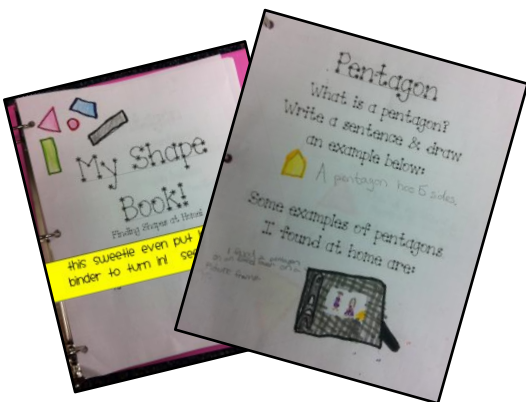 My Shape
Book!
Finding Shapes at Home!
this sweetie even put
binder to turn in!
Pentagon
What is a pentagon?
Write a sentence & draw
an example below:
A pentagon has 5 sides
Some examples of pentagons
I found at home are:
I found a
picture frame